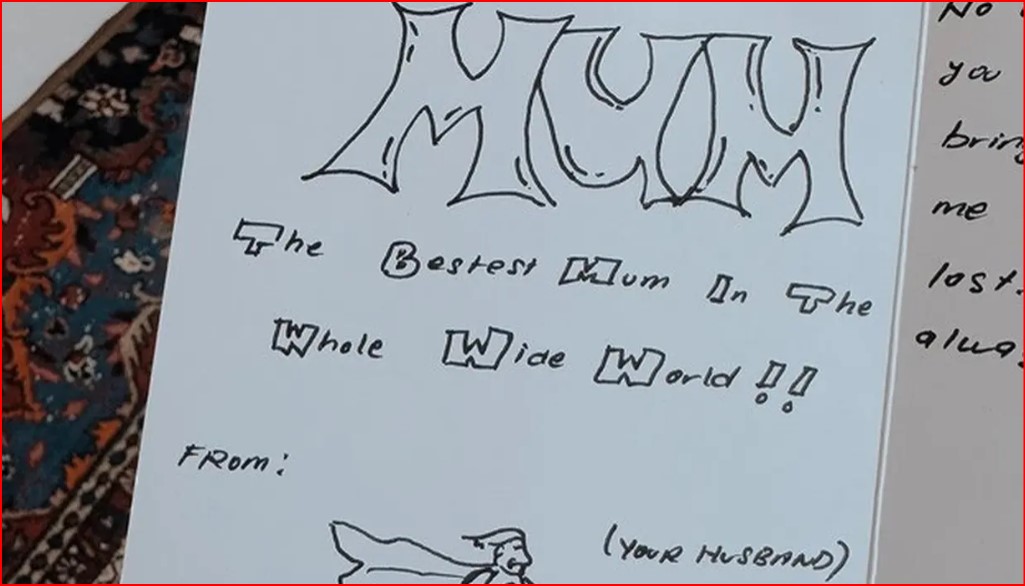 MUM
The Bestest Mum In The
Whole Wide World!!
FROM:
(YOUR HUSBAND)
No
you
bring
me
lost.